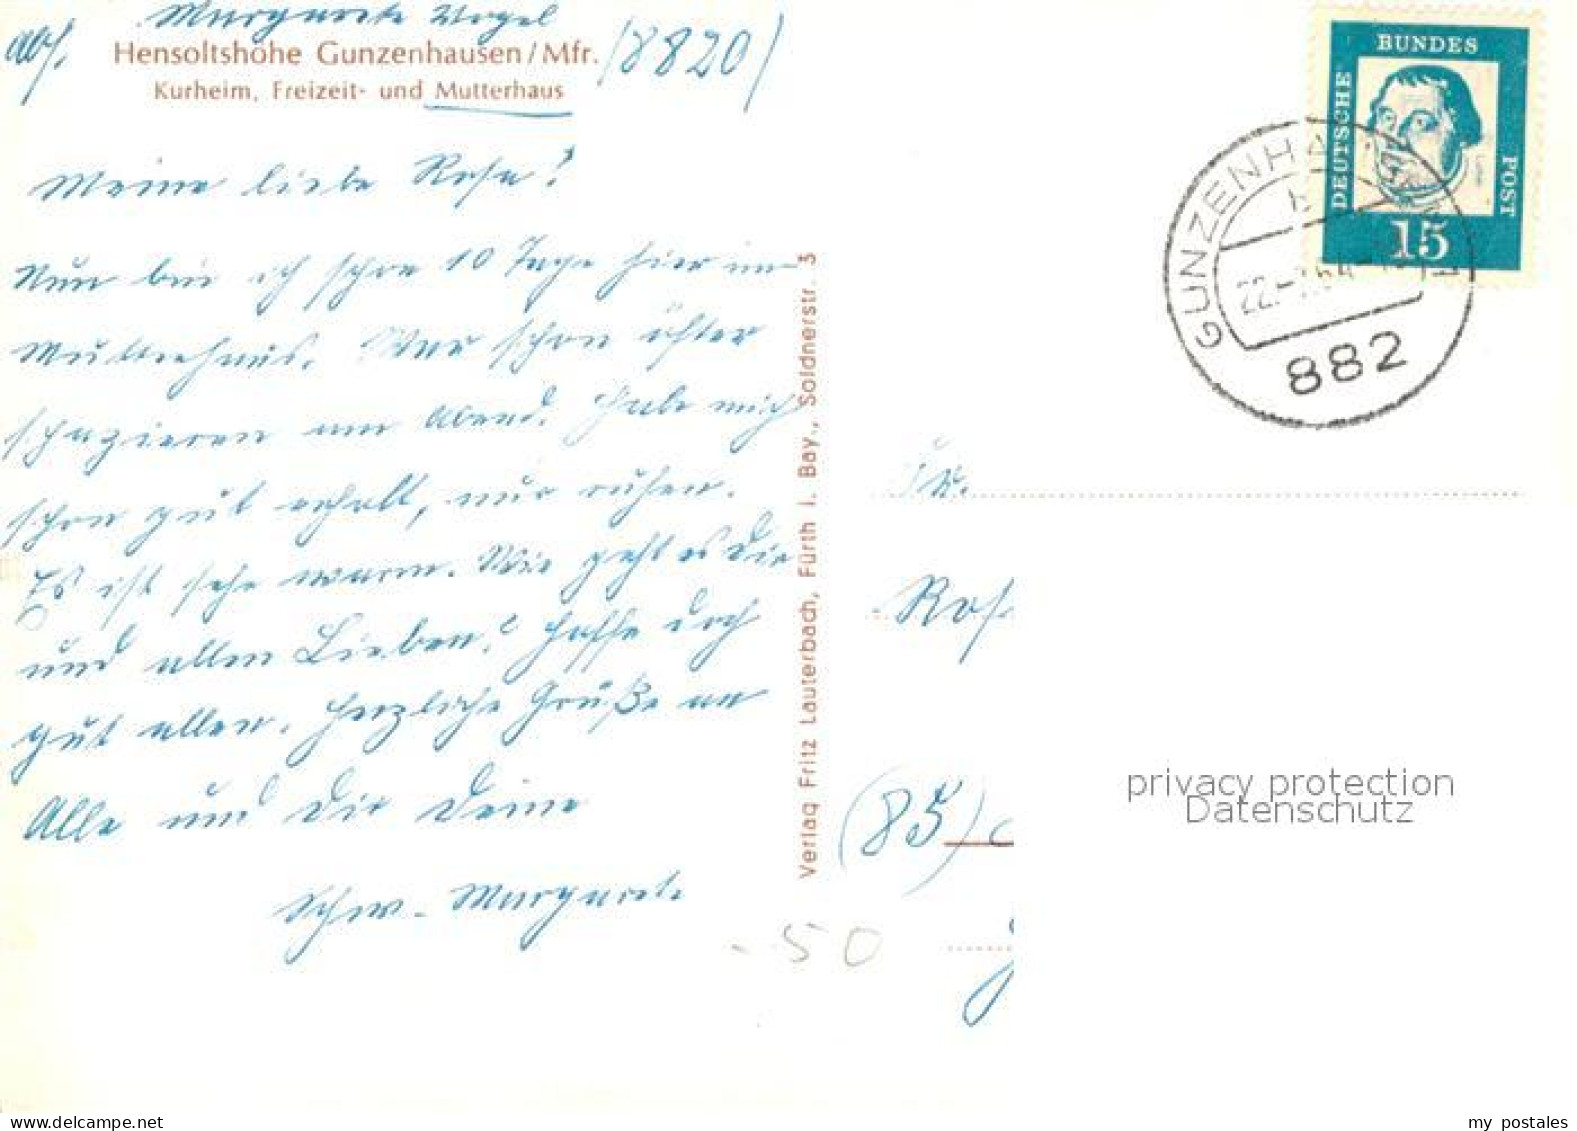 Margarete Vogel
Abs.
Hensoltshöhe Gunzenhausen/Mfr. (8820)
Kurheim, Freizeit- und Mutterhaus
Meine liebe Rose!
Nun bin ich schon 10 Tage hier im
Mutterhaus. War schon öfter
spazieren am Abend. Habe mich
schon gut erholt, nur ruhen.
Es ist sehr warm. Wie geht es Dir
und allen Lieben? Hoffe doch
gut allen. Herzliche Grüße an
Alle und Dir Deine
Schw. Margarete
Verlag Fritz Lauterbach, Fürth i. Bay., Soldnerstr. 3
DEUTSCHE
BUNDES
POST
15
GUNZENHAUSEN
b
22.-7.64
882
Fr.
Ros
(85)
- 50
privacy protection
Datenschutz
my postales